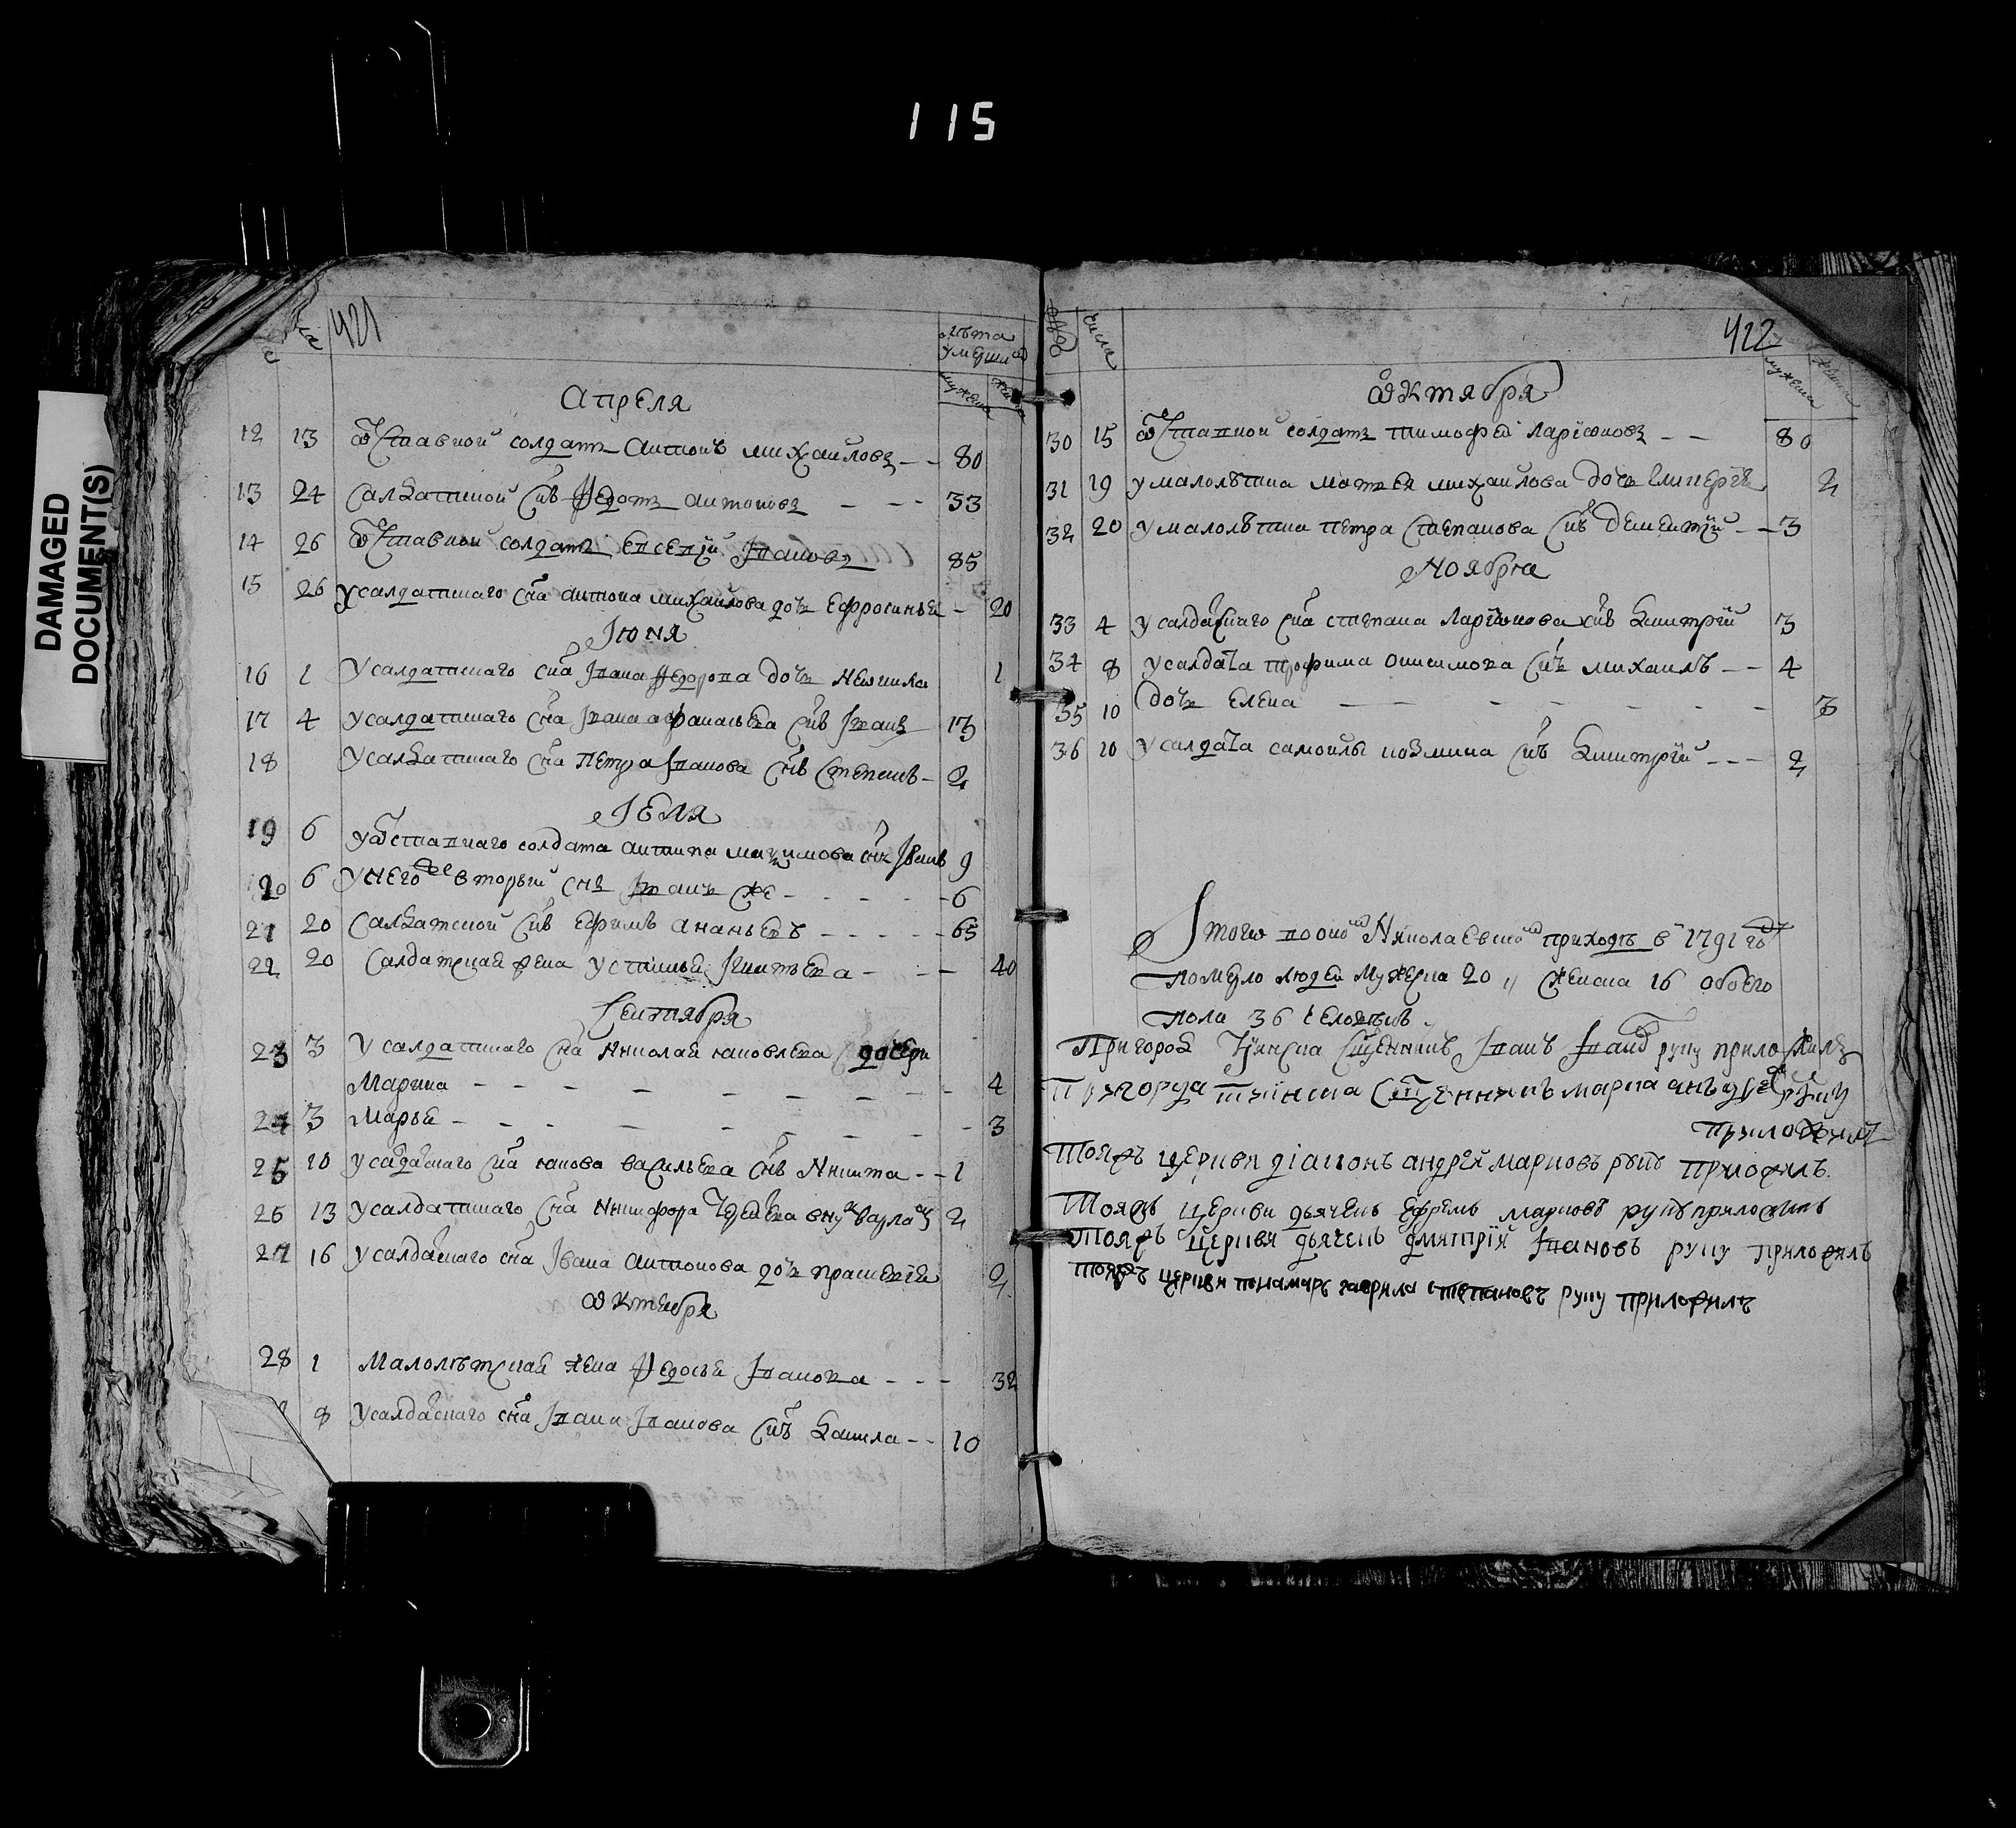 115
DAMAGED
DOCUMENT(S)
421
лѣта
умерши
мужеска женска
Апреля
12 13 Ѿставной солдатъ Антонъ михайловъ – – 80
13 24 Салдатской сн҃ъ Ѳедотъ антоновъ – – – 33
14 26 Ѿставной солдатъ Евсевiй Iвановъ 85
15 26 у салдатскаго сн҃а антона михайлова дочь Ефросинья – 20
Iюня
16 1 У салдатскаго сн҃а Iвана Ѳедорова дочь 1
17 4 у салдатскаго сн҃а Iвана афанасьева сн҃ъ Iванъ 13
18 У салдатскаго сн҃а Петра Iванова сн҃ъ Степанъ – 2
Iюля
19 6 у ѿставнаго солдата антипа максимова сн҃ъ Iванъ 9
20 6 У него же вторый сн҃ъ Iванъ же – – – – – 6
21 20 Салдатской сн҃ъ Ефимъ ананьевъ – – – – – 65
22 20 Салдатская жена устинья Iгнатьева – – – 40
Сентября
23 3 У салдатскаго сн҃а Николая яковлева дочери
Марина – – – – – – – – 4
24 3 Марья – – – – – – – – 3
25 10 у салдатскаго сн҃а якова васильева сн҃ъ Никита – – 1
26 13 у салдатскаго сн҃а Никифора внукъ 2
27 16 у салдатскаго сн҃а Iвана антонова дочь прасковiя 2
Ѿктября
28 1 Малолѣтская жена Ѳедосья Iванова – – – 32
8 у салдатскаго сн҃а Iвана Iванова сн҃ъ Данила – – 10
422
числа
мужеска женска
Ѿктября
30 15 Ѿставной солдатъ тимофей Ларiѡновъ – – 80
31 19 у малолѣтка матвея михайлова дочь 2
32 20 у малолѣтка петра степанова сн҃ъ Дементiй – – 3
Ноября
33 4 у салдатскаго сн҃а степана Ларiѡнова сн҃ъ Дмитрiй 3
34 8 у салдата трофима онисимова сн҃ъ михаилъ – – 4
35 10 дочь елена – – – – – – – 3
36 10 у салдата самойлы козмина сн҃ъ Дмитрiй – – – 2
Iтого во оной Николаевской приходѣ в 1791 году
померло людей мужеска 20 „ женска 16 обоего
пола 36 человѣкъ.
Пригорода Тiинска священникъ Iванъ Iвановъ руку приложилъ
Пригорода тиинска священникъ марка руку
приложилъ
тояжъ церкви дiаконъ андрей марковъ руку приложилъ.
Тояжъ церкви дьячекъ ефремъ марковъ руку приложилъ
Тояжъ церкви дьячекъ дмитрiй Iвановъ руку приложилъ
тояжъ церкви понамарь гаврила степановъ руку приложилъ